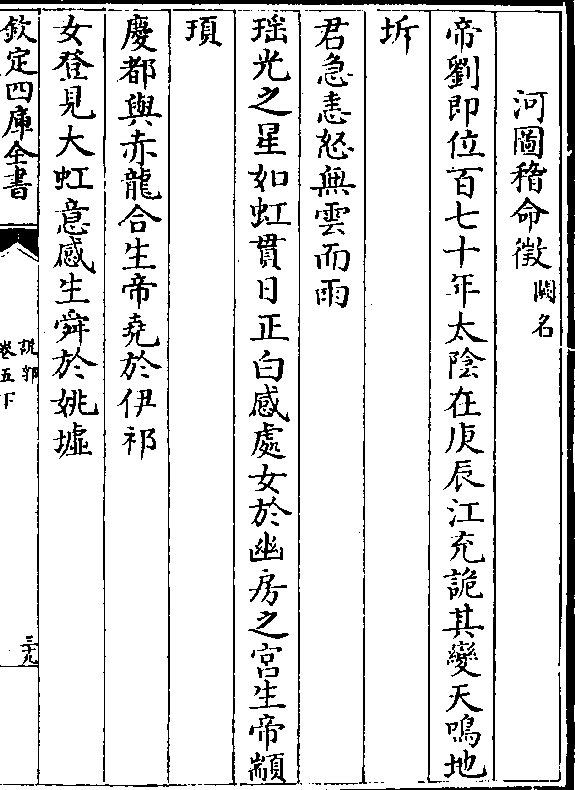 河圖稽命徵闕名
帝劉即位百七十年太陰在庚辰江充詭其變天鳴地
坼
君急恚怒無雲而雨
瑶光之星如虹貫日正白感處女於幽房之宮生帝顓
頊
慶都與赤龍合生帝堯於伊祁
女登見大虹意感生舜於姚墟
欽定四庫全書
說郛
卷五下
三九